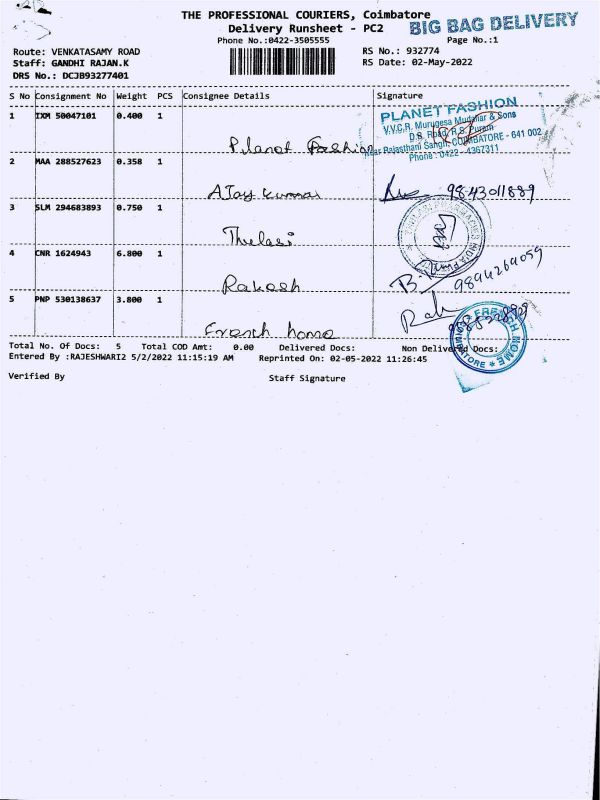 THE PROFESSIONAL COURIERS, Coimbatore
BIG BAG DELIVERY
Delivery Runsheet - PC2
Phone No.:0422-3505555
Page No.:1
Route: VENKATASAMY ROAD
RS No.: 932774
Staff: GANDHI RAJAN.K
RS Date: 02-May-2022
DRS No.: DCJB93277401
S No Consignment No Weight PCS Consignee Details Signature
1 IXM 50047101 0.400 1
PLANET FASHION
V.V.C.R. Murugesa Mudaliar & Sons
D.B. Road, R.S. Puram
Near Rajasthani Sangh, COIMBATORE - 641 002
Phone : 0422 - 4367311
Planet Fashion
2 MAA 288527623 0.358 1
AJay kumar 9843011889
3 SLM 294683893 0.750 1
Thulasi
4 CNR 1624943 6.800 1
Rakesh 9894269059
5 PNP 530138637 3.800 1
French home
FRENCH HOME
Total No. Of Docs: 5 Total COD Amt: 0.00 Delivered Docs: Non Delivered Docs:
Entered By :RAJESHWARI2 5/2/2022 11:15:19 AM Reprinted On: 02-05-2022 11:26:45
Verified By Staff Signature